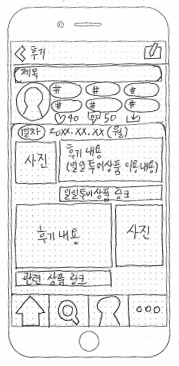 후기
제목
# # #
# # #
40 50
날짜 20XX.XX.XX (월)
사진
후기 내용
(일일투어상품 이용내용)
일일투어상품 링크
후기 내용
사진
관련 상품 링크